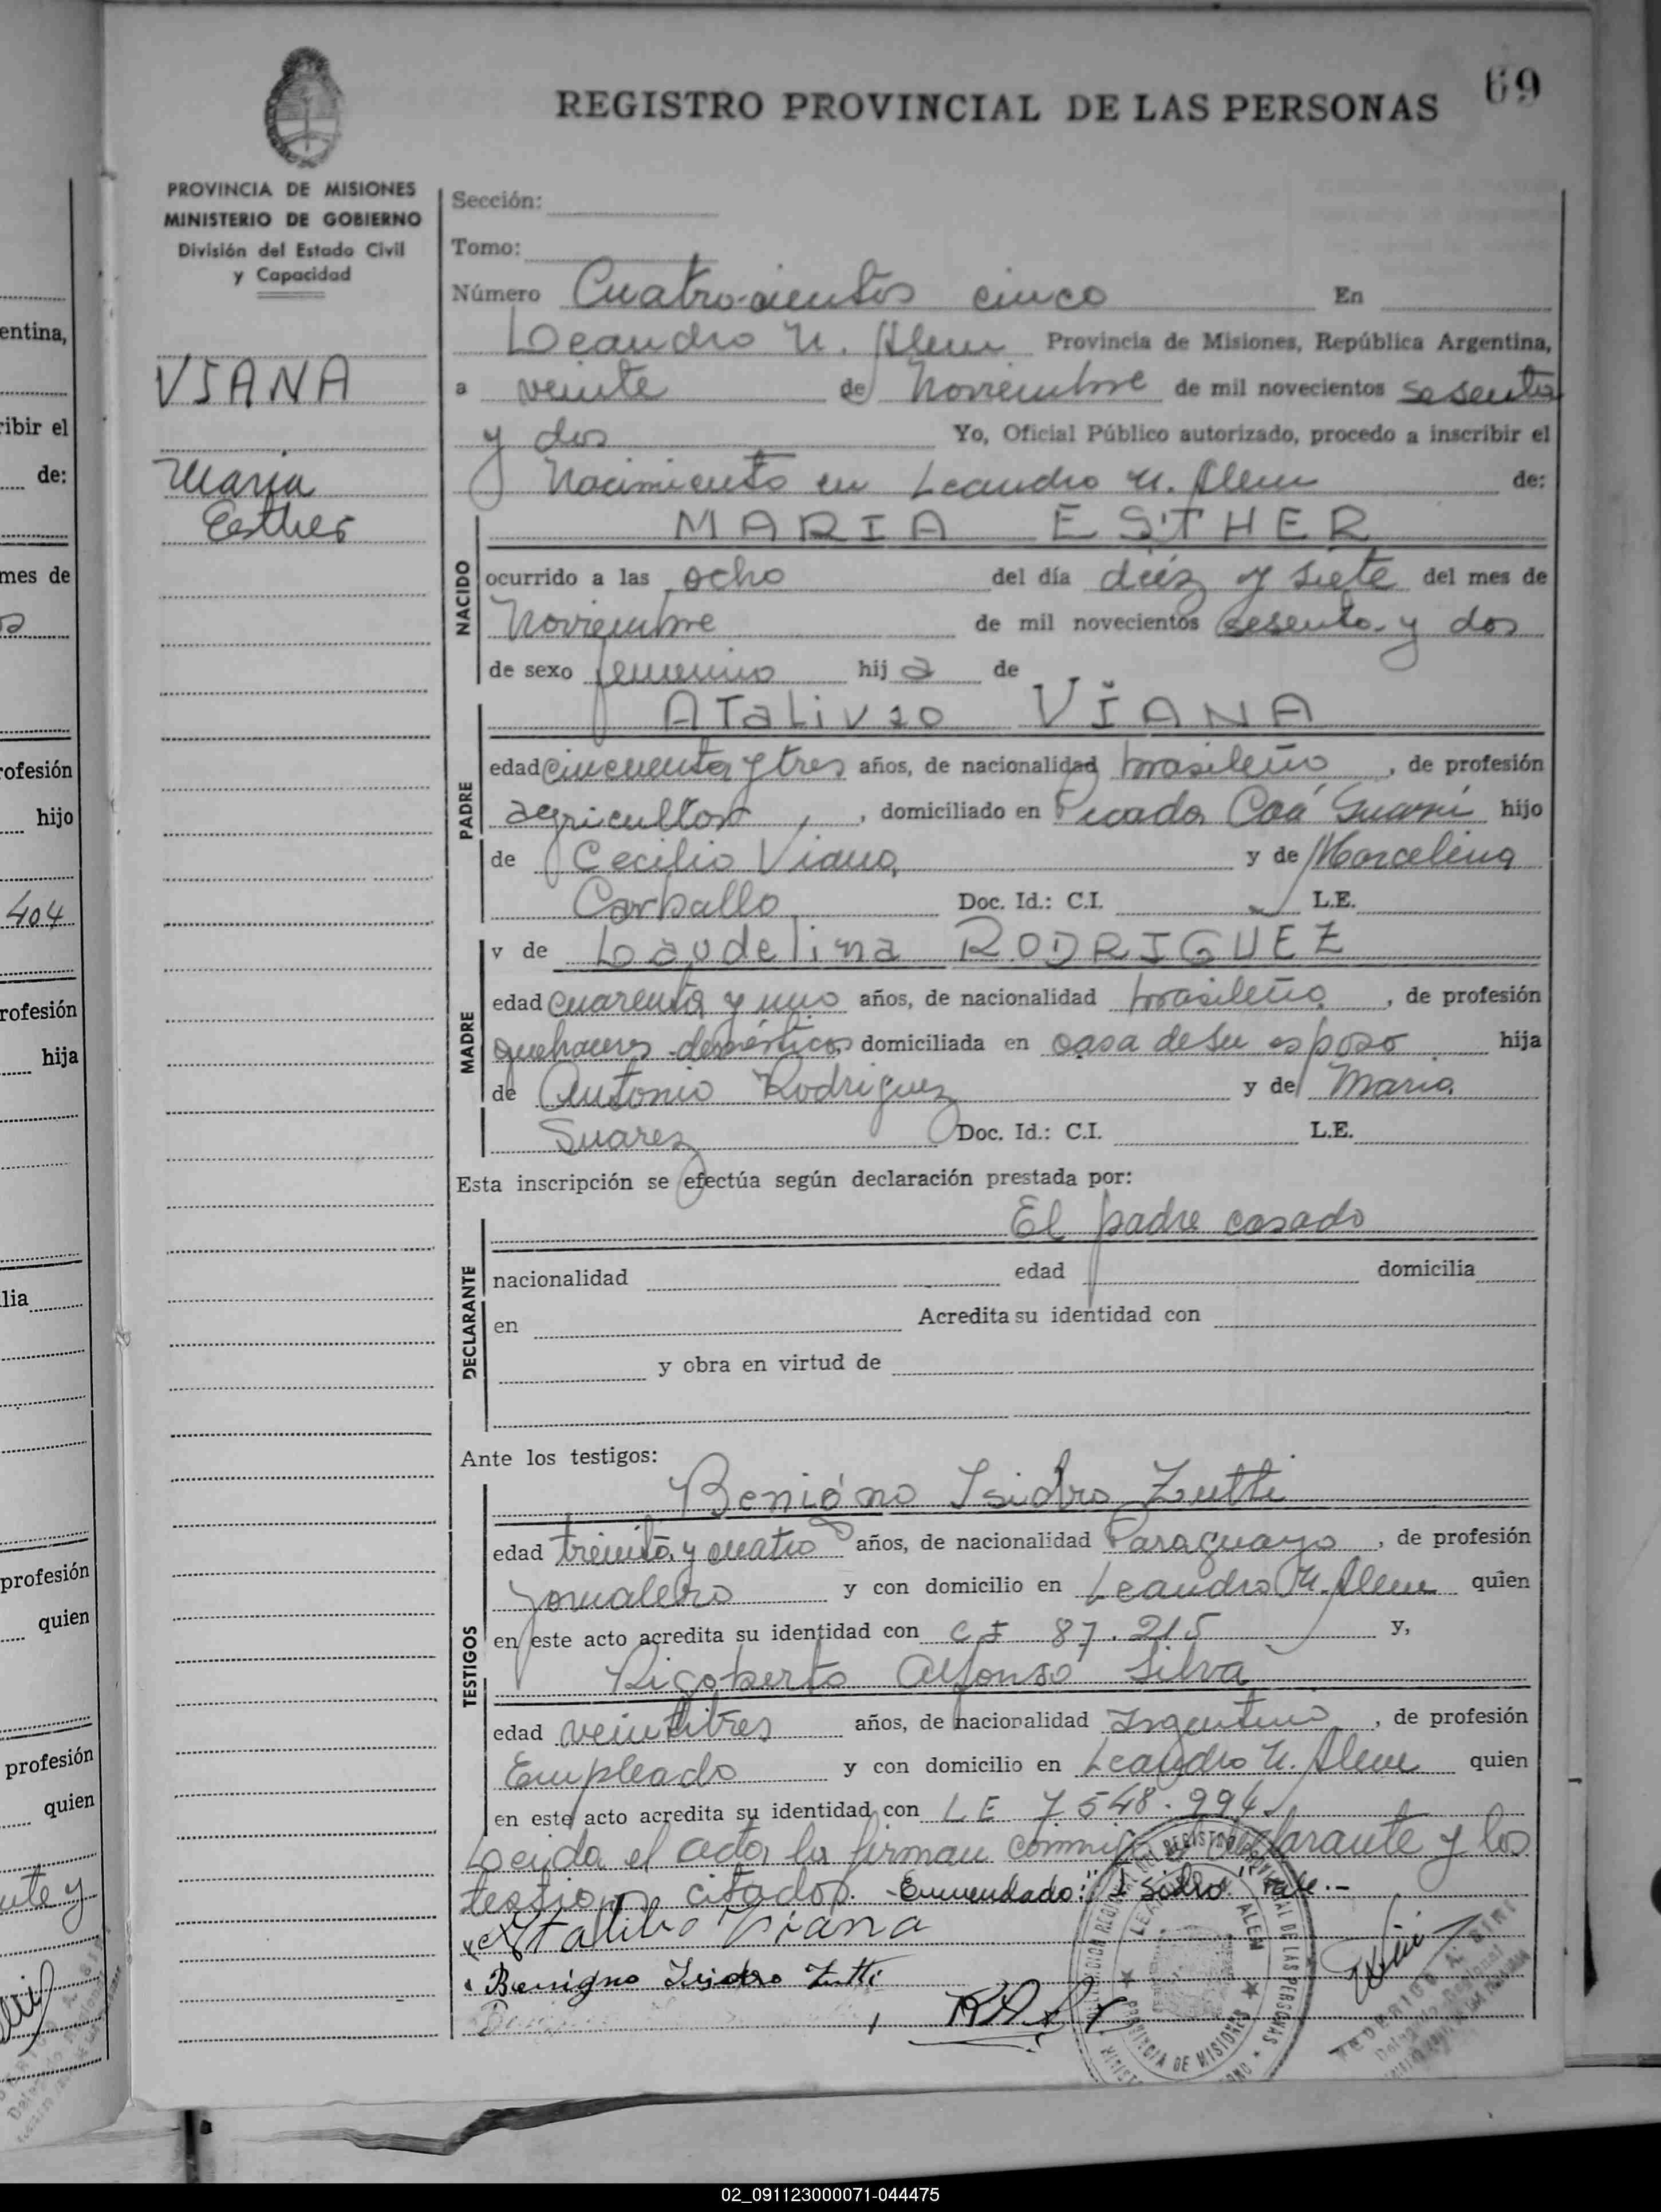 69
REGISTRO PROVINCIAL DE LAS PERSONAS
PROVINCIA DE MISIONES
MINISTERIO DE GOBIERNO
División del Estado Civil
y Capacidad
VIANA
Maria
Esther
Sección:
Tomo:
Número Cuatro-cientos cinco En
Leandro N. Alem Provincia de Misiones, República Argentina,
a veinte de Noviembre de mil novecientos sesenta
y dos Yo, Oficial Público autorizado, procedo a inscribir el
Nacimiento en Leandro N. Alem de:
NACIDO
MARIA ESTHER
ocurrido a las ocho del día diéz y siete del mes de
Noviembre de mil novecientos sesenta y dos
de sexo femenino hija de
PADRE
ATaLivio VIANA
edad cincuenta y tres años, de nacionalidad brasileño, de profesión
agricultor, domiciliado en Picada Caá Guarní hijo
de Cecilio Viana y de Marcelina
Carballo Doc. Id.: C.I. L.E.
MADRE
y de Laudelina RODRIGUEZ
edad cuarenta y uno años, de nacionalidad brasileña, de profesión
quehaceres domésticos domiciliada en casa de su esposo hija
de Antonio Rodriguez y de Maria
Suarez Doc. Id.: C.I. L.E.
Esta inscripción se efectúa según declaración prestada por:
DECLARANTE
El padre casado
nacionalidad edad domicilia
en Acredita su identidad con
y obra en virtud de
Ante los testigos:
TESTIGOS
Benigno Isidro Zutti
edad treinta y cuatro años, de nacionalidad Paraguayo, de profesión
Jornalero y con domicilio en Leandro N. Alem quien
en este acto acredita su identidad con C I 87.215 y,
Rigoberto Alfonso Silva
edad veintitres años, de nacionalidad Argentino, de profesión
Empleado y con domicilio en Leandro N. Alem quien
en este acto acredita su identidad con L E 7548.994
Leida el acta la firman conmigo el declarante y los
testigos citados. -Enmendado: "Isidro" Vale.-
Atalibio Viana
Benigno Isidro Zutti
LEANDRO N. ALEM
PROVINCIA DE MISIONES
entina,
ribir el
de:
mes de
rofesión
hijo
404
rofesión
hija
lia
profesión
quien
profesión
quien
nte y
02_091123000071-044475